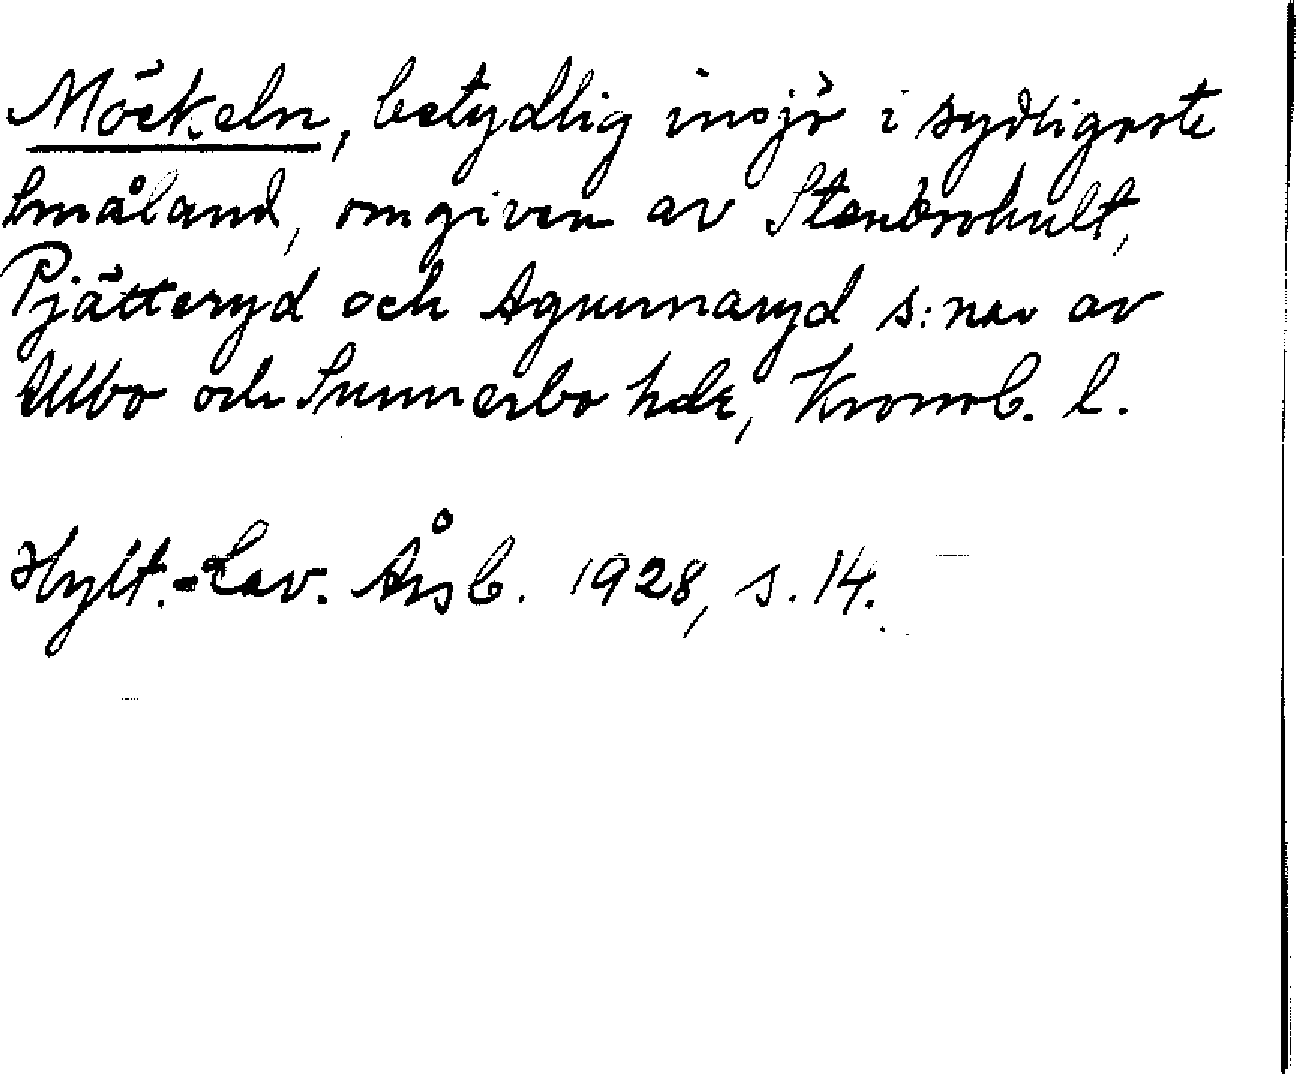 Möckeln, betydlig insjö i sydligaste
Småland, omgiven av Stenbrohult,
Pjätteryd och Agunnaryd s:nar av
Allbo och Sunnerbo hde, Kronob. l.
Hylt.-Cav. Årsb. 1928, s. 14.